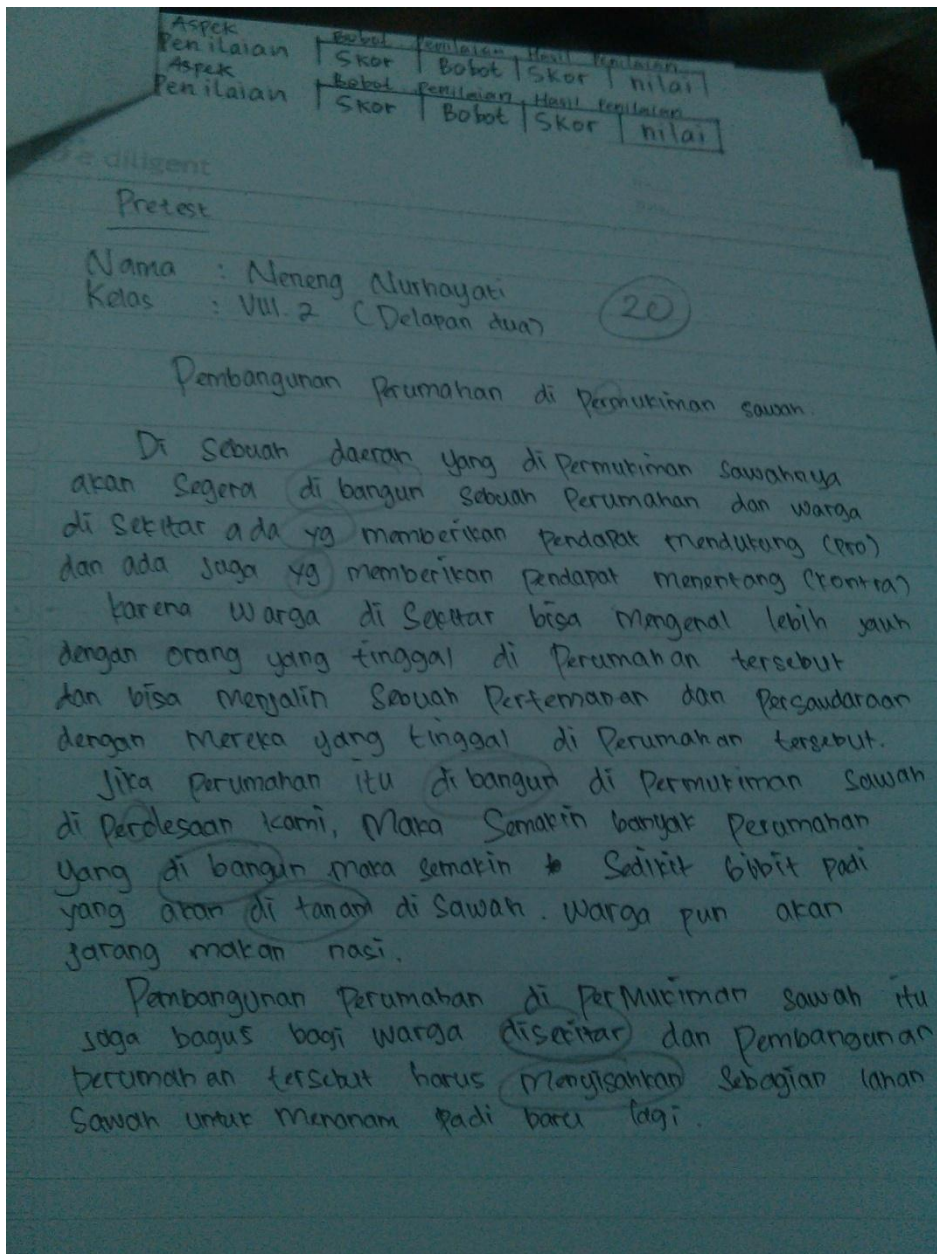 Aspek
Penilaian Bobot Penilaian Hasil Penilaian
Skor Bobot Skor nilai
Aspek
Penilaian Bobot Penilaian Hasil Penilaian
Skor Bobot Skor nilai
diligent
Pretest
Nama : Neneng Nurhayati
Kelas : VIII.2 (Delapan dua)
20
Pembangunan Perumahan di Permukiman sawah.
Di Sebuah daerah yang di Permukiman Sawahnya
akan Segera di bangun Sebuah Perumahan dan warga
di Sekitar ada yg memberikan Pendapat mendukung (Pro)
dan ada Juga yg memberikan Pendapat menentang (kontra)
karena warga di Sekitar bisa mengenal lebih jauh
dengan orang yang tinggal di Perumahan tersebut
dan bisa menjalin Sebuah Pertemanan dan Persaudaraan
dengan Mereka yang tinggal di Perumahan tersebut.
Jika Perumahan itu di bangun di Permukiman Sawah
di Perdesaan kami, Maka Semakin banyak Perumahan
yang di bangun maka semakin Sedikit bibit Padi
yang akan di tanam di Sawah. Warga pun akan
jarang makan nasi.
Pembangunan Perumahan di PerMukiman sawah itu
Juga bagus bagi warga disekitar dan Pembangunan
Perumahan tersebut harus Menyisahkan Sebagian lahan
Sawah untuk Menanam Padi baru lagi.